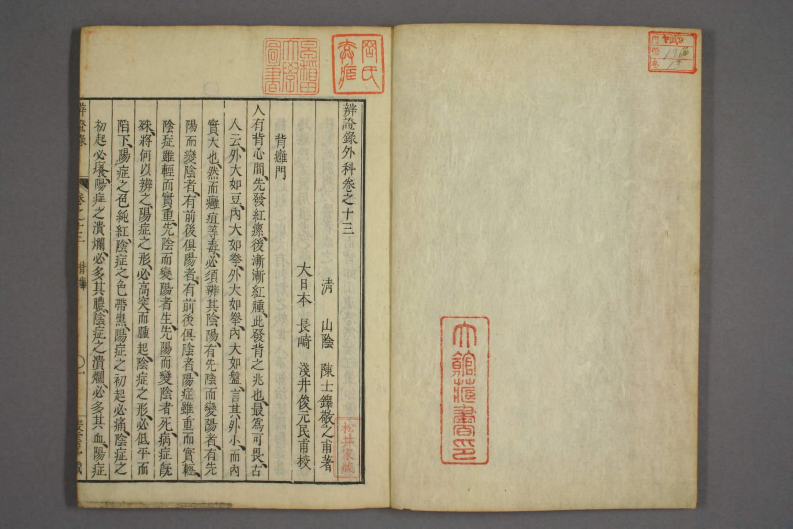 辨證錄外科卷之十三
清 山陰 陳士鐸敬之甫著
大日本 長崎 淺井俊元民甫校
背癰門
人有背心間先發紅瘰後漸漸紅腫此發背之兆也最爲可畏古
人云外大如豆內大如拳外大如拳內大如盤言其外小而內
實大也然而癰疽等毒必須辨其陰陽有先陰而變陽者有先
陽而變陰者有前後俱陽者有前後俱陰者陽症雖重而實輕
陰症雖輕而實重先陰而變陽者生先陽而變陰者死病症既
殊將何以辨之陽症之形必高突而腫起陰症之形必低平而
陷下陽症之色純紅陰症之色帶黑陽症之初起必痛陰症之
初起必癢陽症之潰爛必多其膿陰症之潰爛必多其血陽症
辨證錄 卷之十三
圖書
松井家藏
藏書印